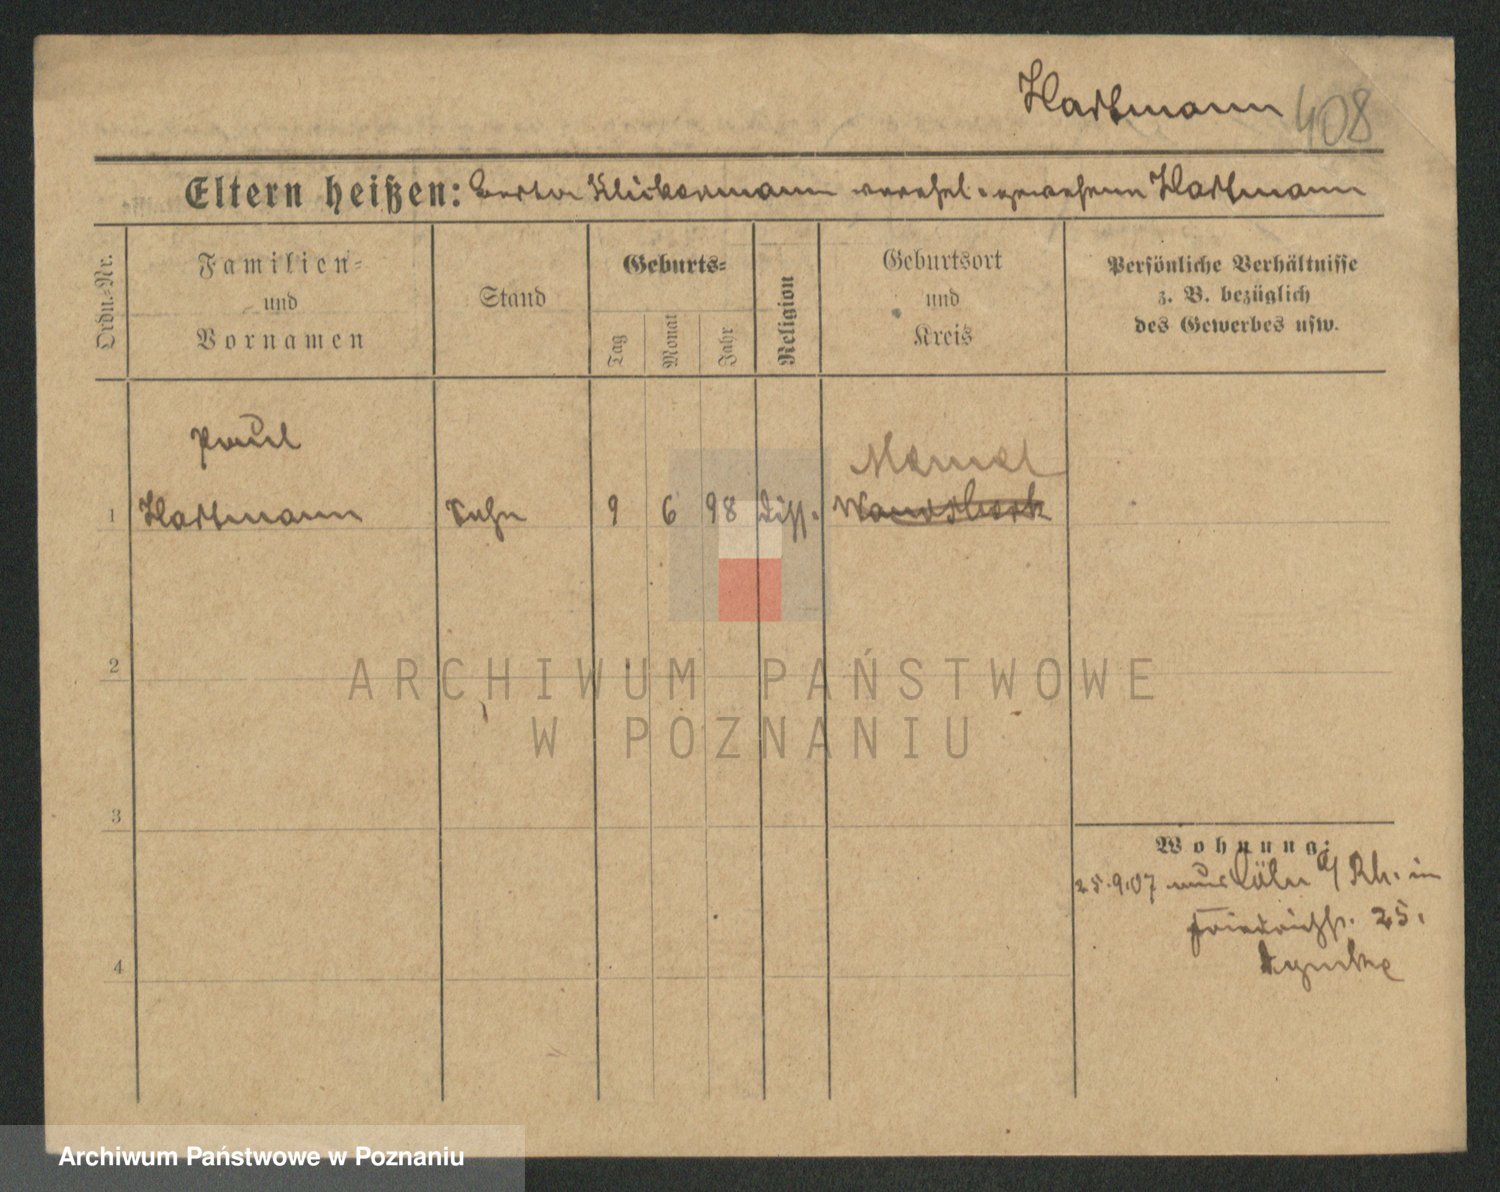 Hartmann 408
Eltern heißen: Berta Klickermann verehel. gewesene Hartmann
Ordn.-Nr.
Familien-
und
Vornamen
Stand
Geburts-
Tag
Monat
Jahr
Religion
Geburtsort
und
Kreis
Persönliche Verhältnisse
z. B. bezüglich
des Gewerbes usw.
Paul
Memel
1 Hartmann Sohn 9 6 98 Diss. Wandsbek
2
ARCHIWUM PAŃSTWOWE
W POZNANIU
3
Wohnung:
25.9.07 aus Cöln a/Rh. in
Friedrichstr. 25.
4
Archiwum Państwowe w Poznaniu